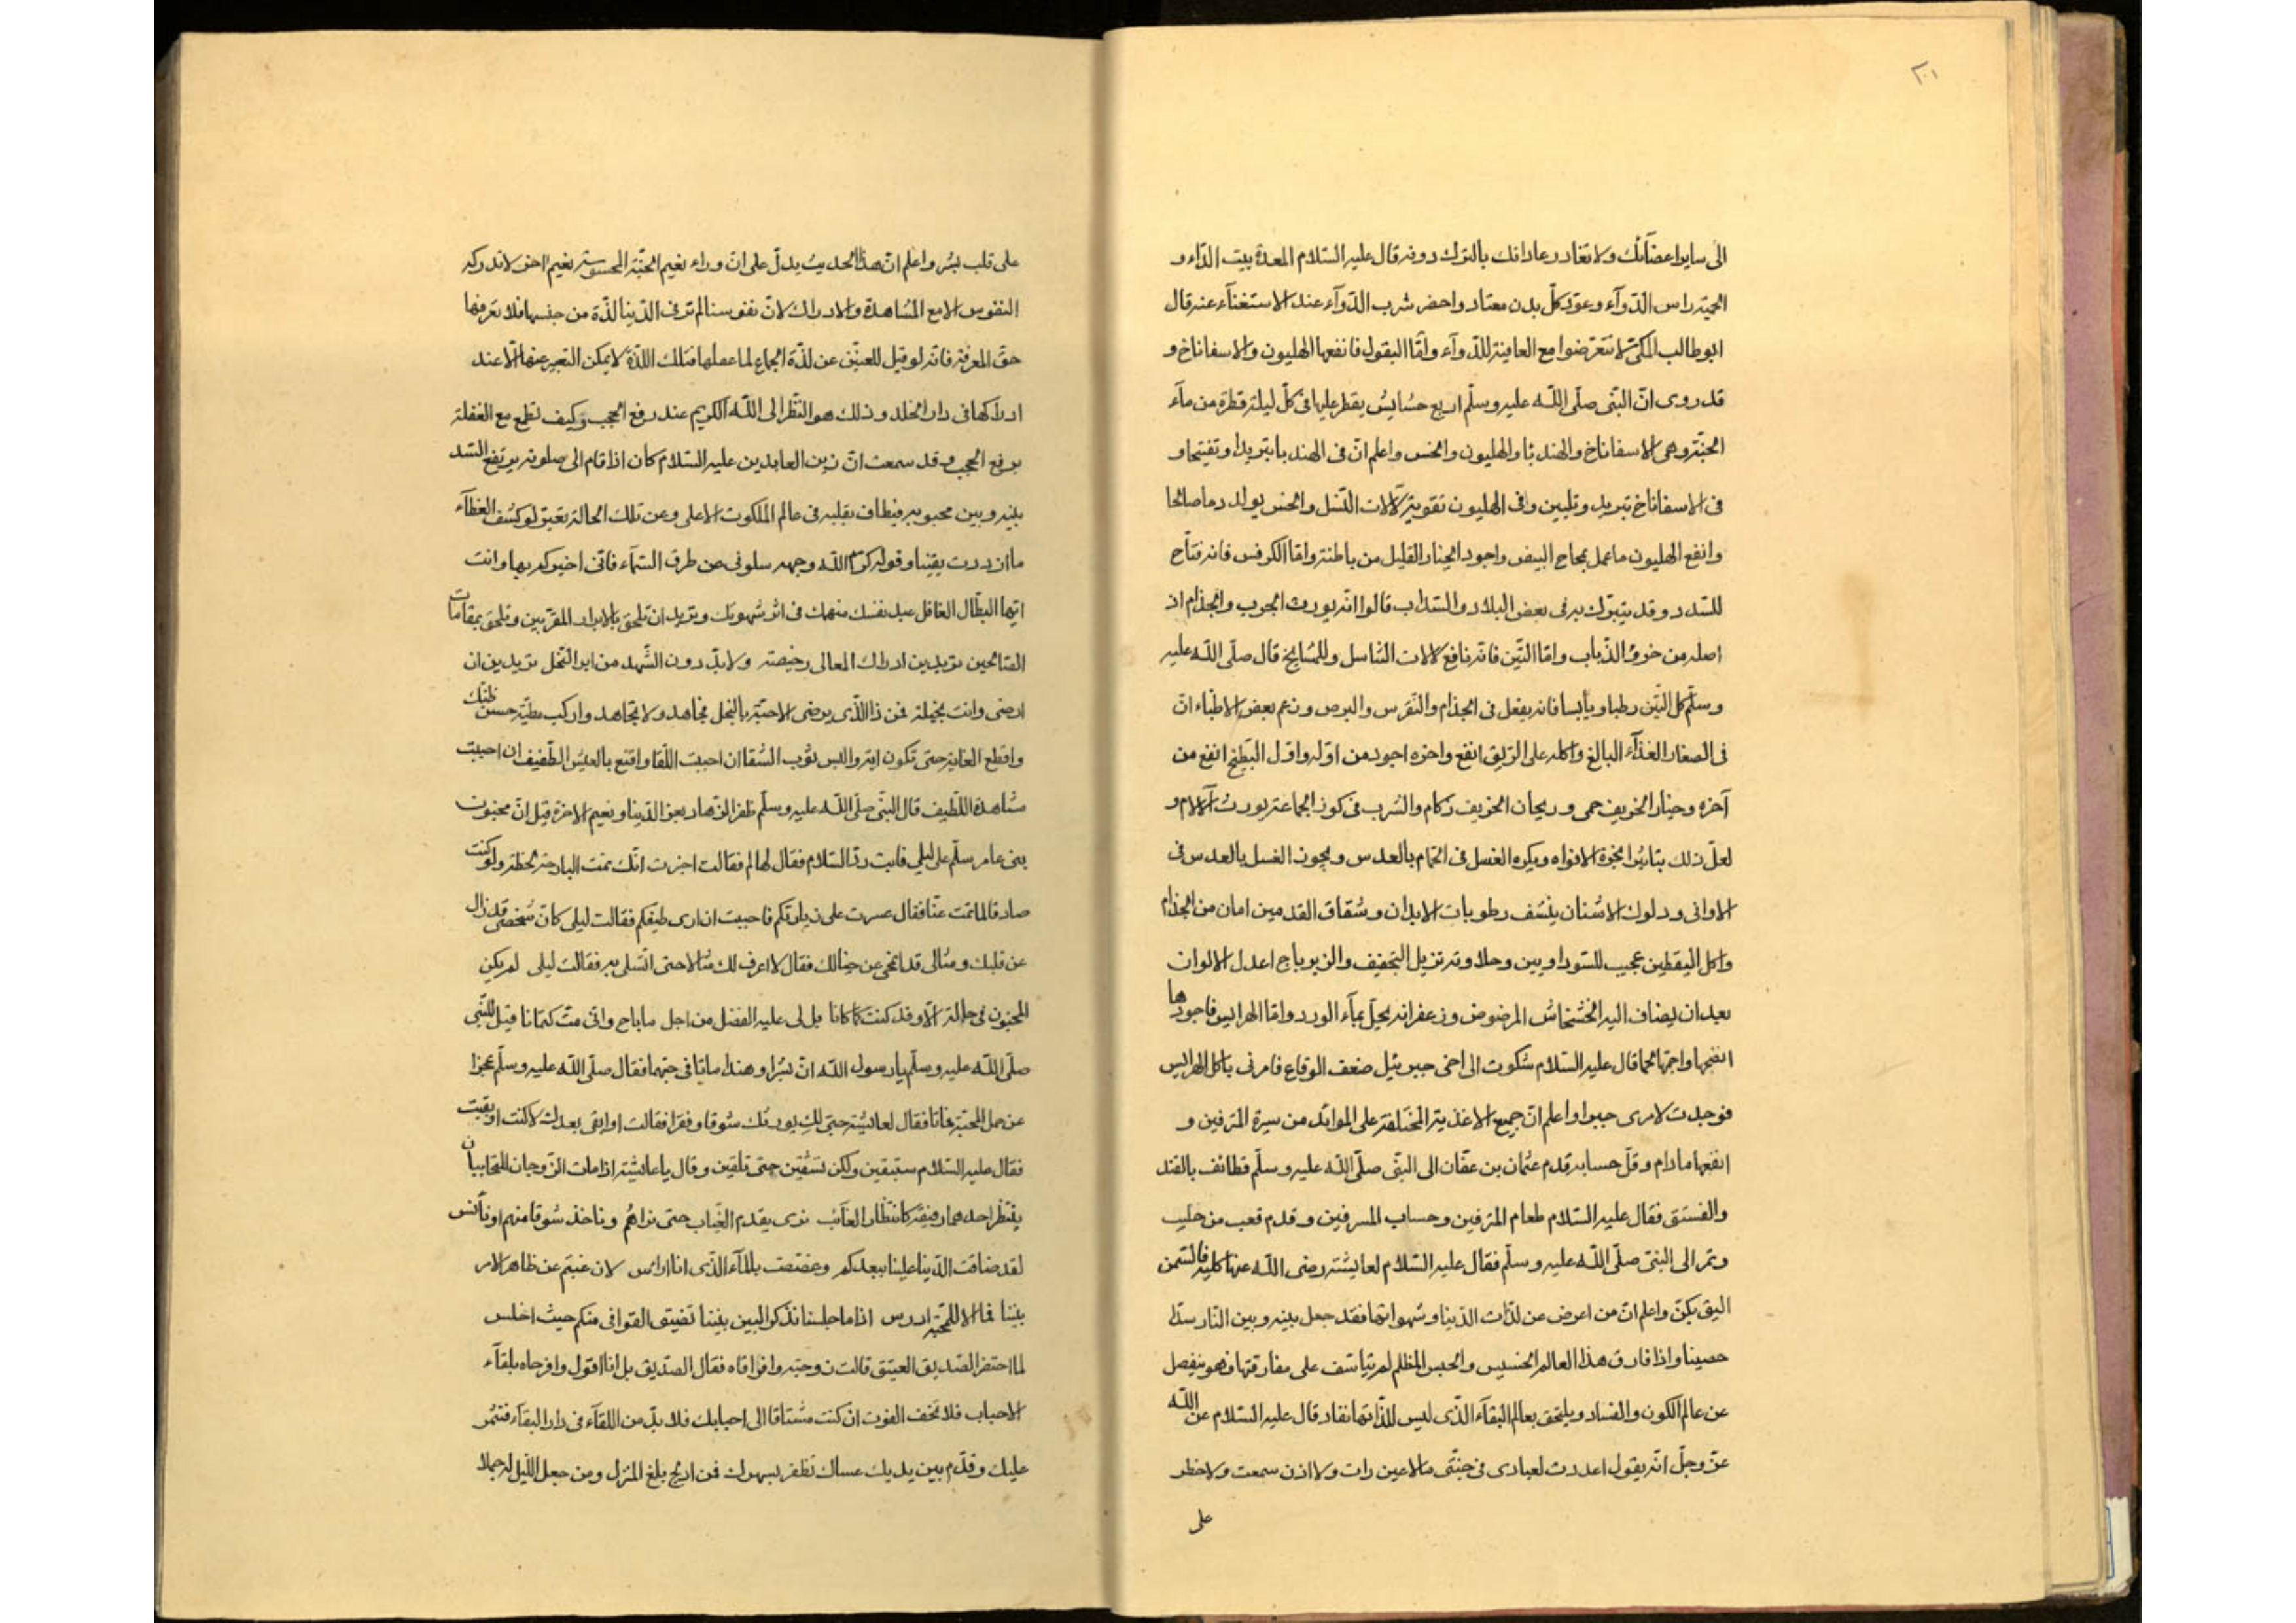 ٢٠١
الى ساير اعضآئك ولا تغادر عاداتك بالترك دونه قال عليه السّلام المعدة بيت الدّاء و
الحمية راس الدّوآء وعوّد كلّ بدن معتاد واحضر شرب الدّوآء عند الاستغنآء عنه قال
ابو طالب المكّى لا تتعرّضوا مع العافية للدّوآء وامّا البقول فانفعها الهليون والاسفاناخ و
قد روى انّ النّبى صلّى اللّه عليه وسلّم اربع حشايش يقطر عليها فى كلّ ليلة قطرة من مآء
الجنّة وهى الاسفاناخ والهندبا والهليون والخس واعلم انّ فى الهندبا تبريدا وتفتيحا و
فى الاسفاناخ تبريد وتليين وفى الهليون تقوية لآلات النّسل والخس يولد دما صالحا
وانفع الهليون ما عمل بمحاح البيض واجود الخيار القليل من باطنة وامّا الكرفس فانه فتّاح
للسّدد وقد يتبرّك به فى بعض البلاد والسّذاب قالوا انّه يورث الجرب والجذام اذ
اصله من خروء الذّباب وامّا التّين فانّه نافع لالات التّناسل وللمشايخ قال صلّى اللّه عليه
وسلّم كل التّين رطبا ويابسا فانه يفعل فى الجذام والنّقرس والبرص وزعم بعض الاطبّاء انّ
فى الصغار الغذآء البالغ واكله على الرّيق انفع واخره اجود من اوّله واوّل البّطيخ انفع من
آخره وخيار الخريف حمى وريحان الخريف زكام والشرب فى كوز الجماعة يورث آلالام و
لعلّ ذلك بتاثير ابخرة الافواه ويكره الغسل فى الحمّام بالعدس ويجوز الغسل بالعدس فى
الاوانى ودلوك الاشنان ينشف رطوبات الابدان وشقاق القدمين امان من الجذام
واكل اليقطين عجيب للسّوداويين وحلاوته تزيل التجفيف والزيرباج اعدل الالوان
بعد ان يضاف اليه الخشخاش المرضوض وزعفرانه يحلّ بمآء الورد وامّا الهرايس فاجودها
انضجها واحمّها لحما قال عليه السّلام شكوت الى اخى جبرئيل ضعف الوقاع فامرنى باكل الهرايس
فوجدت لامرى جبرا واعلم انّ جميع الاغذية المختلفة على الموائد من سيرة المترفين و
انفعها ما دام وقلّ حسابه قدم عثمان بن عفّان الى النّبى صلّى اللّه عليه وسلّم قطائف بالقند
والفستق فقال عليه السّلام طعام المترفين وحساب المسرفين وقدم قعب من حليب
وتمر الى النّبى صلّى اللّه عليه وسلّم فقال عليه السّلام لعايشه رضى اللّه عنها كليه فالسّمن
اليق بكنّ واعلم انّ من اعرض عن لذّات الدّنيا وشهواتها فقد جعل بينه وبين النّار سدّا
حصينا واذا فارق هذا العالم الخسيس والحبس المظلم لم يتاسّف على مفارقتها فهو ينفصل
عن عالم الكون والفساد ويلتحق بعالم البقآء الذّى ليس للذّاتها نفاد قال عليه السّلام عن اللّه
عزّ وجلّ انّه يقول اعددت لعبادى فى جنّتى ما لا عين رات ولا اذن سمعت ولا خطر
على
على قلب بشر واعلم انّ هذا الحديث يدلّ على انّ وراء نعيم الجنّة المحسوسة نعيم اخر لا تدركه
النفوس الا مع المشاهدة والادراك لانّ نفوسنا لم تر فى الدّنيا لذّة من جنسها فلا تعرفها
حقّ المعرفة فانّه لو قيل للعنّين عن لذّة الجماع لما عقلها فتلك اللذّة لا يمكن التّعبير عنها الّا عند
ادراكها فى دار الخلد وذلك هو النّظر الى اللّه الكريم عند رفع الحجب وكيف تطمع مع الغفلة
برفع الحجب وقد سمعت انّ زين العابدين عليه السّلام كان اذا قام الى صلوته يرتفع السّد
بينه وبين محبوبه فيطاف بقلبه فى عالم الملكوت الاعلى وعن تلك الحالة يعبّر لو كشف الغطآء
ما ازددت يقينا وقوله كرّم اللّه وجهه سلونى عن طرق السّمآء فانّى اخبركم بها وانت
ايّها البطّال الغافل عبد نفسك منهمك فى اثر شهوتك وتريد ان تلحق بالابرار المقرّبين وتلحق بمقامات
الصّالحين تريدين ادراك المعالى رخيصة ولا بدّ دون الشّهد من ابر النّحل تريدين ان
ارضى وانت بخيلة فمن ذا الّذى يرضى الاحبّة بالبخل فجاهد ولا تجاهد واركب مطيّة حسن ظنّك
واقطع الغاية حتى تكون اية والبس ثوب الشّقا ان احببت اللّقا واقنع بالعيش الطّفيف ان احببت
مشاهدة اللّطيف قال النّبى صلّى اللّه عليه وسلّم ظفر الزّهاد بعز الدّنيا ونعيم الاخرة قيل انّ مجنون
بنى عامر سلّم على ليلى فابت ردّ السّلام فقال لها لم فقالت اخبرت انّك نمت البارحة لحظة ولو كنت
صادقا لما نمت عنّا فقال عسرت على زيارتكم فاحببت ان ارى طيفكم فقالت ليلى كانّ شخصى قد زال
عن قلبك ومثالى قد انمحى عن خيالك فقال لا اعرف لك مثالا حتى اتسلى به فقالت ليلى لم يكن
المجنون فى حالة الّا وقد كنت كما كانا بل لى عليه الفضل من اجل ما باح وانّى متّ كتمانا قيل للنّبى
صلّى اللّه عليه وسلّم يا رسول اللّه انّ بشرا وهندا ماتا فى حبّهما فقال صلّى اللّه عليه وسلّم عجزا
عن حمل المحبّة فماتا فقال لعائشة حبّى لك يورثك شوقا وفقرا فقالت او ابقى بعدك لا كنت او بقيت
فقال عليه السّلام ستبقين ولكن تشقين حتى تلقين وقال يا عائشة اذا مات الزّوجان المتحابان
ينتظر احدهما رفيقه كانتظار الغائب ترى يقدم الغياب حتى نراهم وناخذ شوقا منهم او نأنس
لقد ضاقت الدّنيا علينا ببعدكم وغصصت بالمآء الذّى انا ارامس لان غبتم عن ظاهر الامر
بيننا فما الا للمحبّة ادرس اذا ما جلسنا نذكر البين بيننا تضيق القوافى منكم حيث اخلس
لما احتضر الصّديق العتيق قالت زوجته وا فراقاه فقال الصدّيق بل انا اقول وا فرحاه بلقآء
الاحباب فلا تخف الفوت ان كنت مشتاقا الى احبابك فلا بدّ من اللقآء فى دار البقآء فشمّر
عليك وقدّم بين يديك عساك تظفر بسهرك فمن ادلج بلغ المنزل ومن جعل اللّيل له جملا